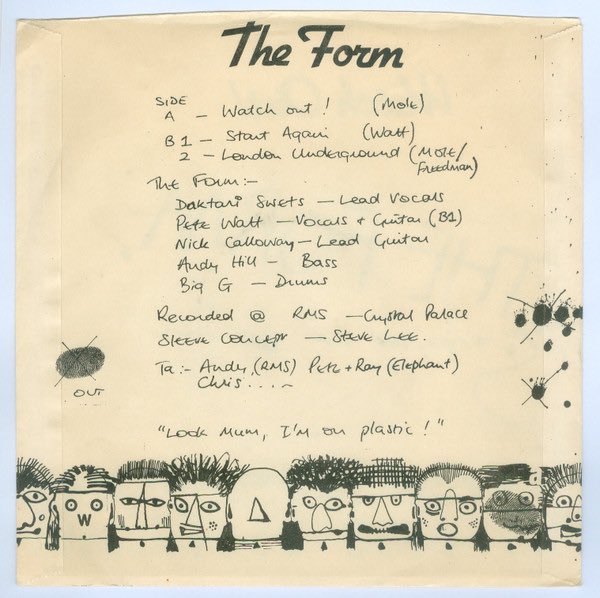 The Form
SIDE
A – Watch out! (Mole)
B1 – Start Again (Watt)
2 – London Underground (Mole/
Freedman)
The Form:-
Daktari Swets – Lead Vocals
Pete Watt – Vocals + Guitar (B1)
Nick Calloway – Lead Guitar
Andy Hill – Bass
Big G – Drums
Recorded @ RMS – Crystal Palace
Sleeve Concept – Steve Lee.
Ta:- Andy (RMS) Pete + Ray (Elephant)
Chris....~
OUT
"Look Mum, I'm on plastic!"
W